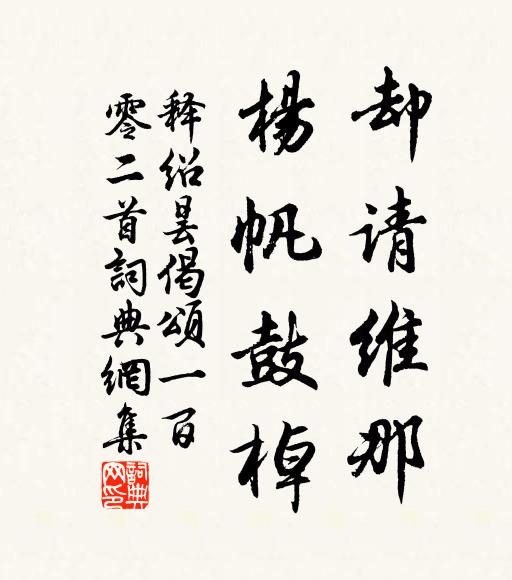 却请维那
楊帆鼓棹
释绍昙偈頌一百
零二首詞典網集